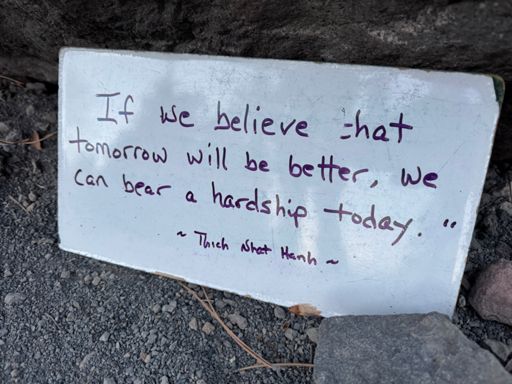 If we believe that
tomorrow will be better, we
can bear a hardship today."
~ Thich Nhat Hanh ~